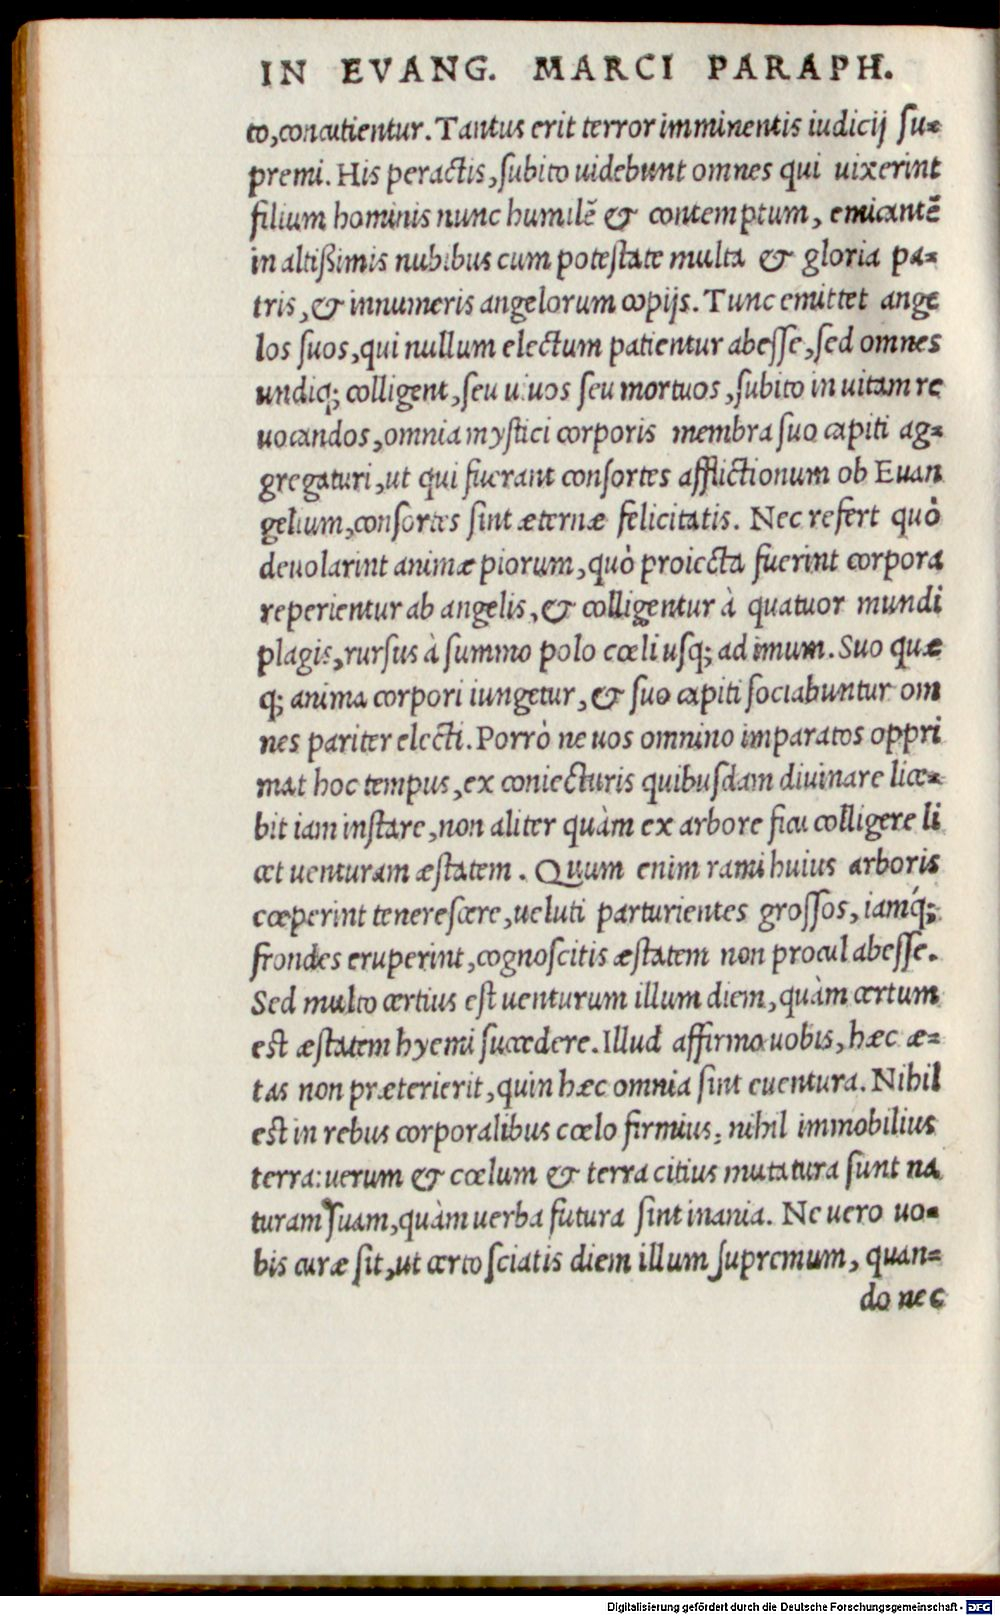 IN EVANG. MARCI PARAPH.
to, concutientur. Tantus erit terror imminentis iudicij su-
premi. His peractis, subito uidebunt omnes qui uixerint
filium hominis nunc humilẽ & contemptum, emicantẽ
in altißimis nubibus cum potestate multa & gloria pa-
tris, & innumeris angelorum copijs. Tunc emittet ange
los suos, qui nullum electum patientur abesse, sed omnes
undiq; colligent, seu uiuos seu mortuos, subito in uitam re
uocandos, omnia mystici corporis membra suo capiti ag-
gregaturi, ut qui fuerant consortes afflictionum ob Euan
gelium, consortes sint æternæ felicitatis. Nec refert quò
deuolarint animæ piorum, quò proiecta fuerint corpora
reperientur ab angelis, & colligentur à quatuor mundi
plagis, rursus à summo polo cœli usq; ad imum. Suo quæ
q; anima corpori iungetur, & suo capiti sociabuntur om
nes pariter electi. Porrò ne uos omnino imparatos oppri
mat hoc tempus, ex coniecturis quibusdam diuinare lice-
bit iam instare, non aliter quàm ex arbore ficu colligere li
cet uenturam æstatem. Quum enim rami huius arboris
cœperint tenerescere, ueluti parturientes grossos, iamq́;
frondes eruperint, cognoscitis æstatem non procul abesse.
Sed multo certius est uenturum illum diem, quàm certum
est æstatem hyemi succedere. Illud affirmo uobis, hæc æ-
tas non præterierit, quin hæc omnia sint euentura. Nihil
est in rebus corporalibus cœlo firmius, nihil immobilius
terra: uerum & cœlum & terra citius mutatura sunt na
turam suam, quàm uerba futura sint inania. Ne uero uo-
bis curæ sit, ut certo sciatis diem illum supremum, quan-
do nec
Digitalisierung gefördert durch die Deutsche Forschungsgemeinschaft - DFG